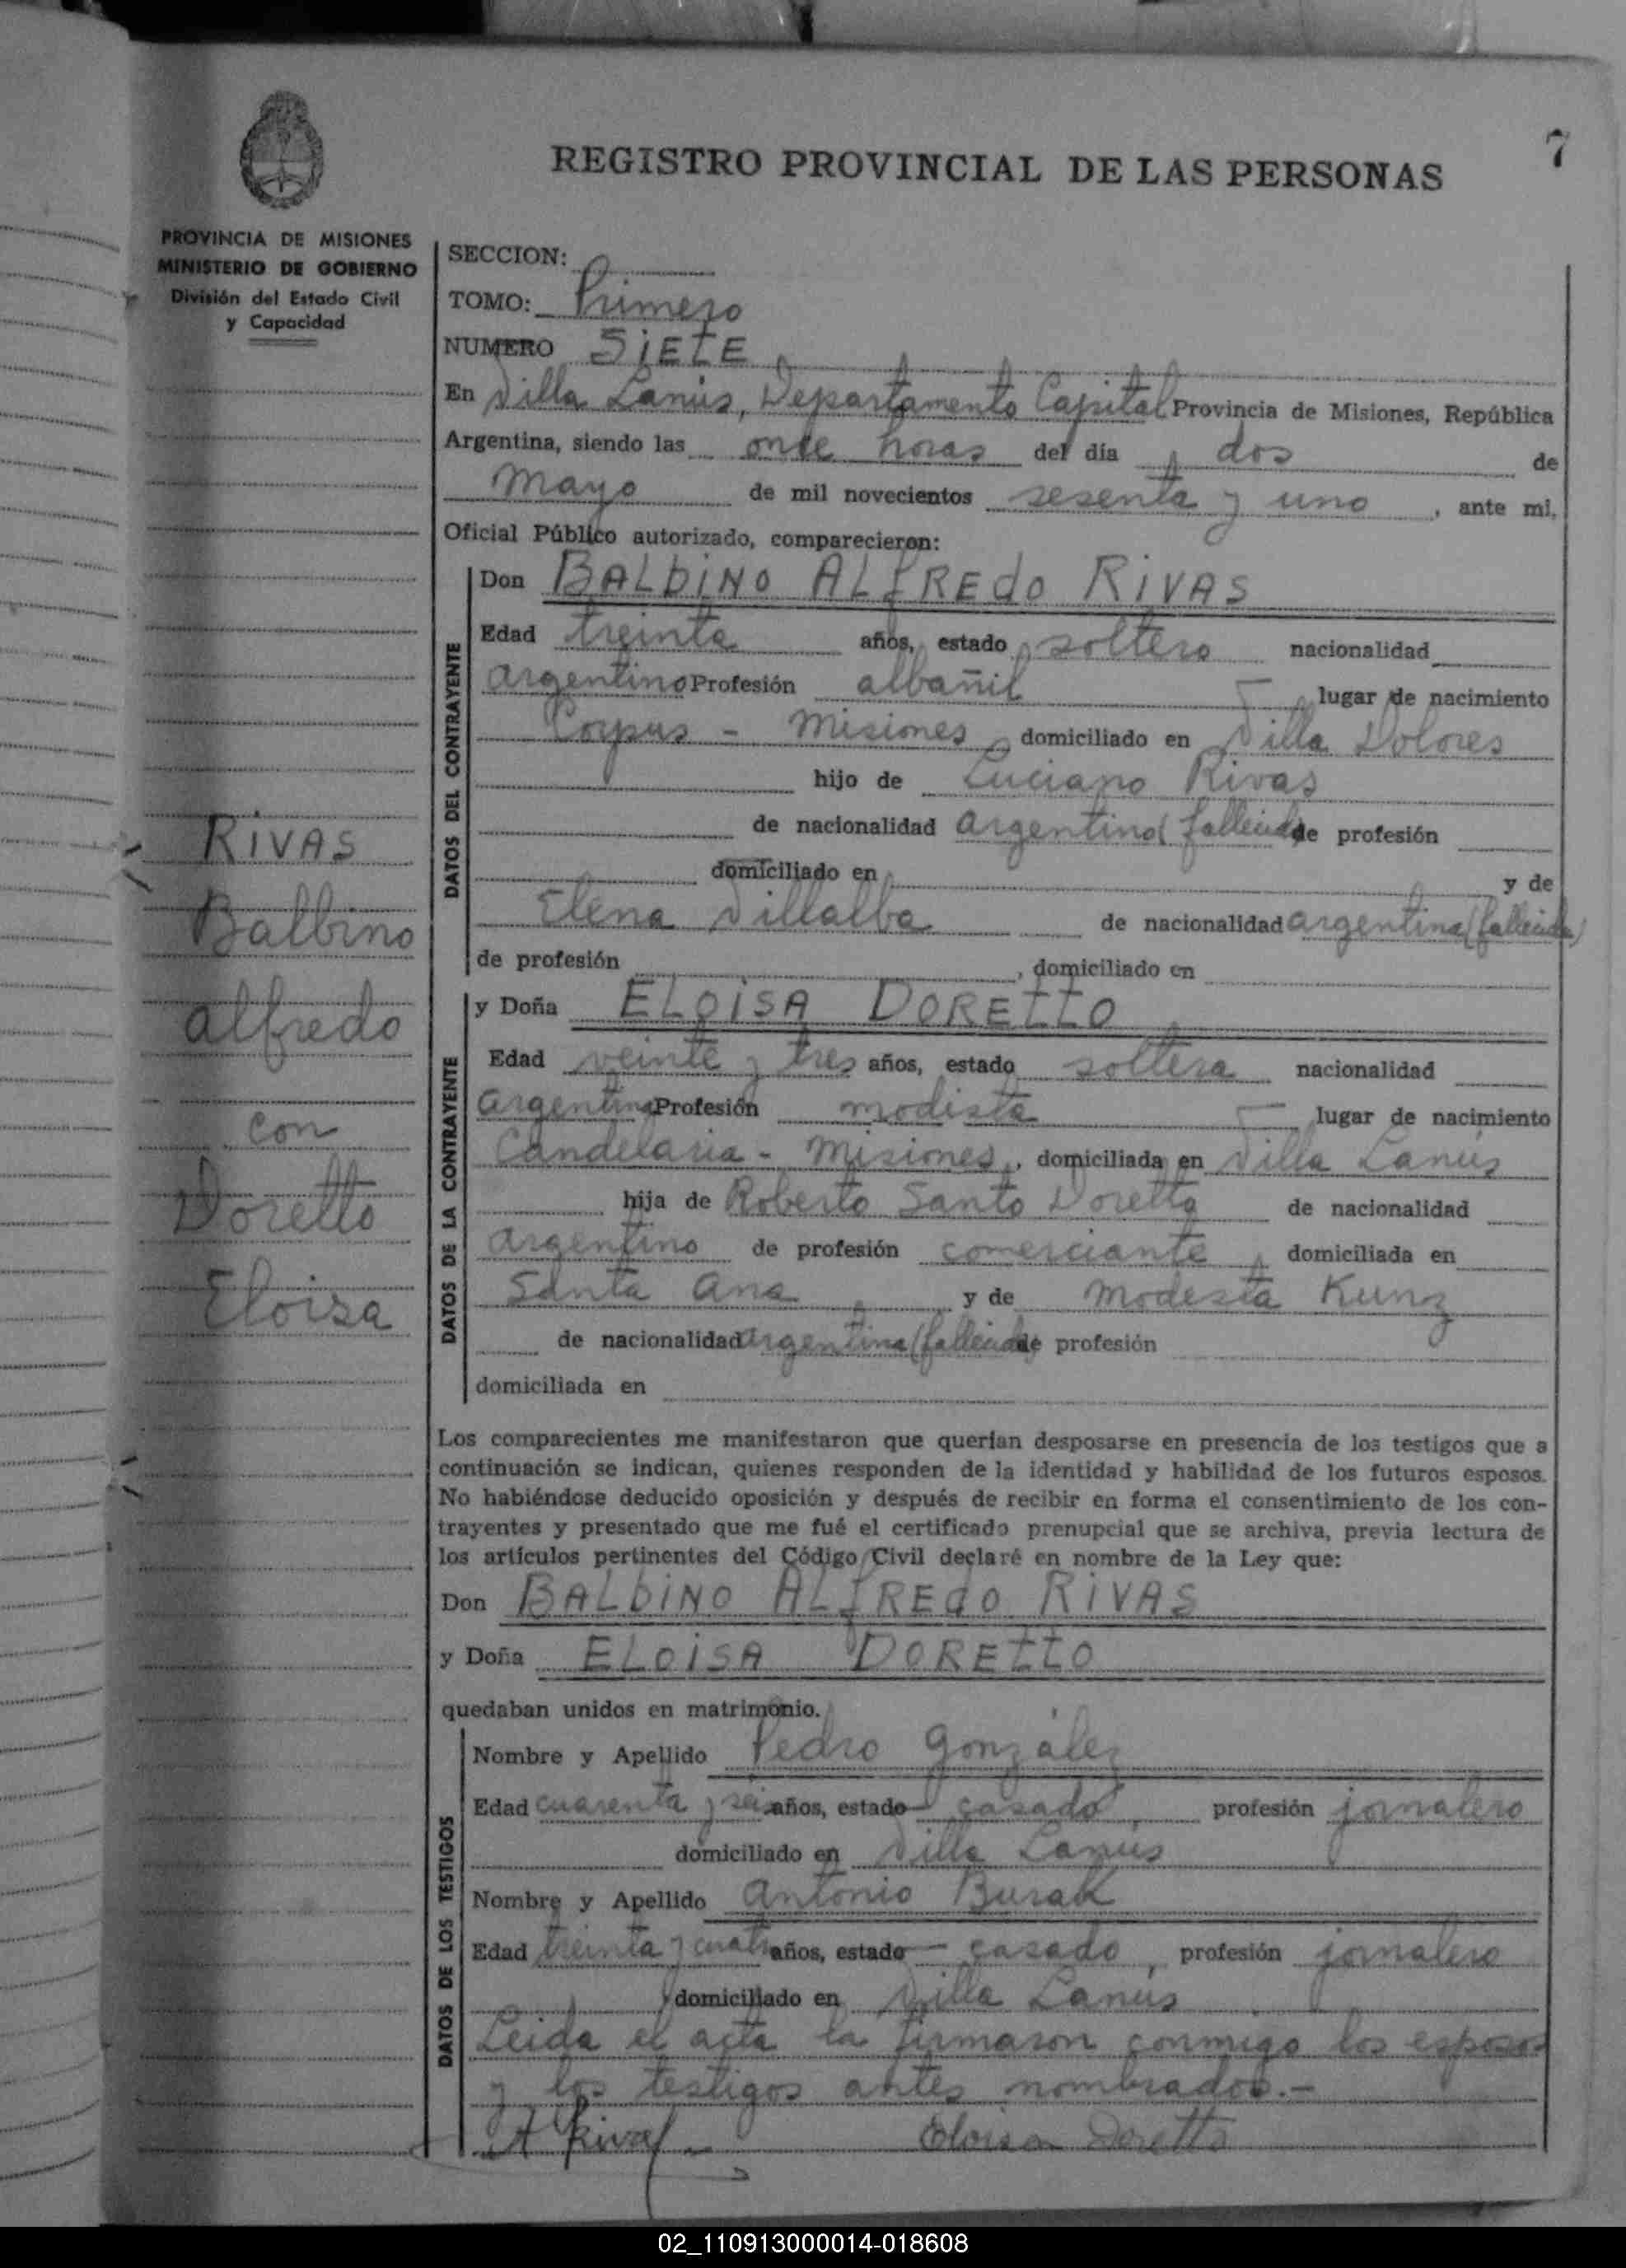 7
REGISTRO PROVINCIAL DE LAS PERSONAS
PROVINCIA DE MISIONES
MINISTERIO DE GOBIERNO
División del Estado Civil
y Capacidad
RIVAS
Balbino
Alfredo
con
Doretto
Eloisa
SECCION:
TOMO: Primero
NUMERO SIETE
En Villa Lanús, Departamento Capital Provincia de Misiones, República
Argentina, siendo las once horas del día dos de
Mayo de mil novecientos sesenta y uno, ante mi,
Oficial Público autorizado, comparecieron:
DATOS DEL CONTRAYENTE
Don BALBINO ALFREDO RIVAS
Edad treinta años, estado soltero nacionalidad
argentino Profesión albañil lugar de nacimiento
Corpus - Misiones, domiciliado en Villa Dolores
hijo de Luciano Rivas
de nacionalidad argentino (fallecido) de profesión
domiciliado en y de
Elena Villalba de nacionalidad argentina (fallecida)
de profesión , domiciliado en
DATOS DE LA CONTRAYENTE
y Doña ELOISA DORETTO
Edad veinte y tres años, estado soltera nacionalidad
argentina Profesión modista lugar de nacimiento
Candelaria - Misiones, domiciliada en Villa Lanús
hija de Roberto Santo Doretto de nacionalidad
argentino de profesión comerciante, domiciliada en
Santa Ana y de Modesta Kunz
de nacionalidad argentina (fallecida) de profesión
domiciliada en
Los comparecientes me manifestaron que querían desposarse en presencia de los testigos que a
continuación se indican, quienes responden de la identidad y habilidad de los futuros esposos.
No habiéndose deducido oposición y después de recibir en forma el consentimiento de los con-
trayentes y presentado que me fué el certificado prenupcial que se archiva, previa lectura de
los artículos pertinentes del Código Civil declaré en nombre de la Ley que:
Don BALBINO ALFREDO RIVAS
y Doña ELOISA DORETTO
quedaban unidos en matrimonio.
DATOS DE LOS TESTIGOS
Nombre y Apellido Pedro González
Edad cuarenta y seis años, estado casado profesión jornalero
domiciliado en Villa Lanús
Nombre y Apellido Antonio Burak
Edad treinta y cuatro años, estado casado, profesión jornalero
domiciliado en Villa Lanús
Leida el acta la firmaron conmigo los esposos
y los testigos antes nombrados.-
A Rivas
Eloisa Doretto
02_110913000014-018608